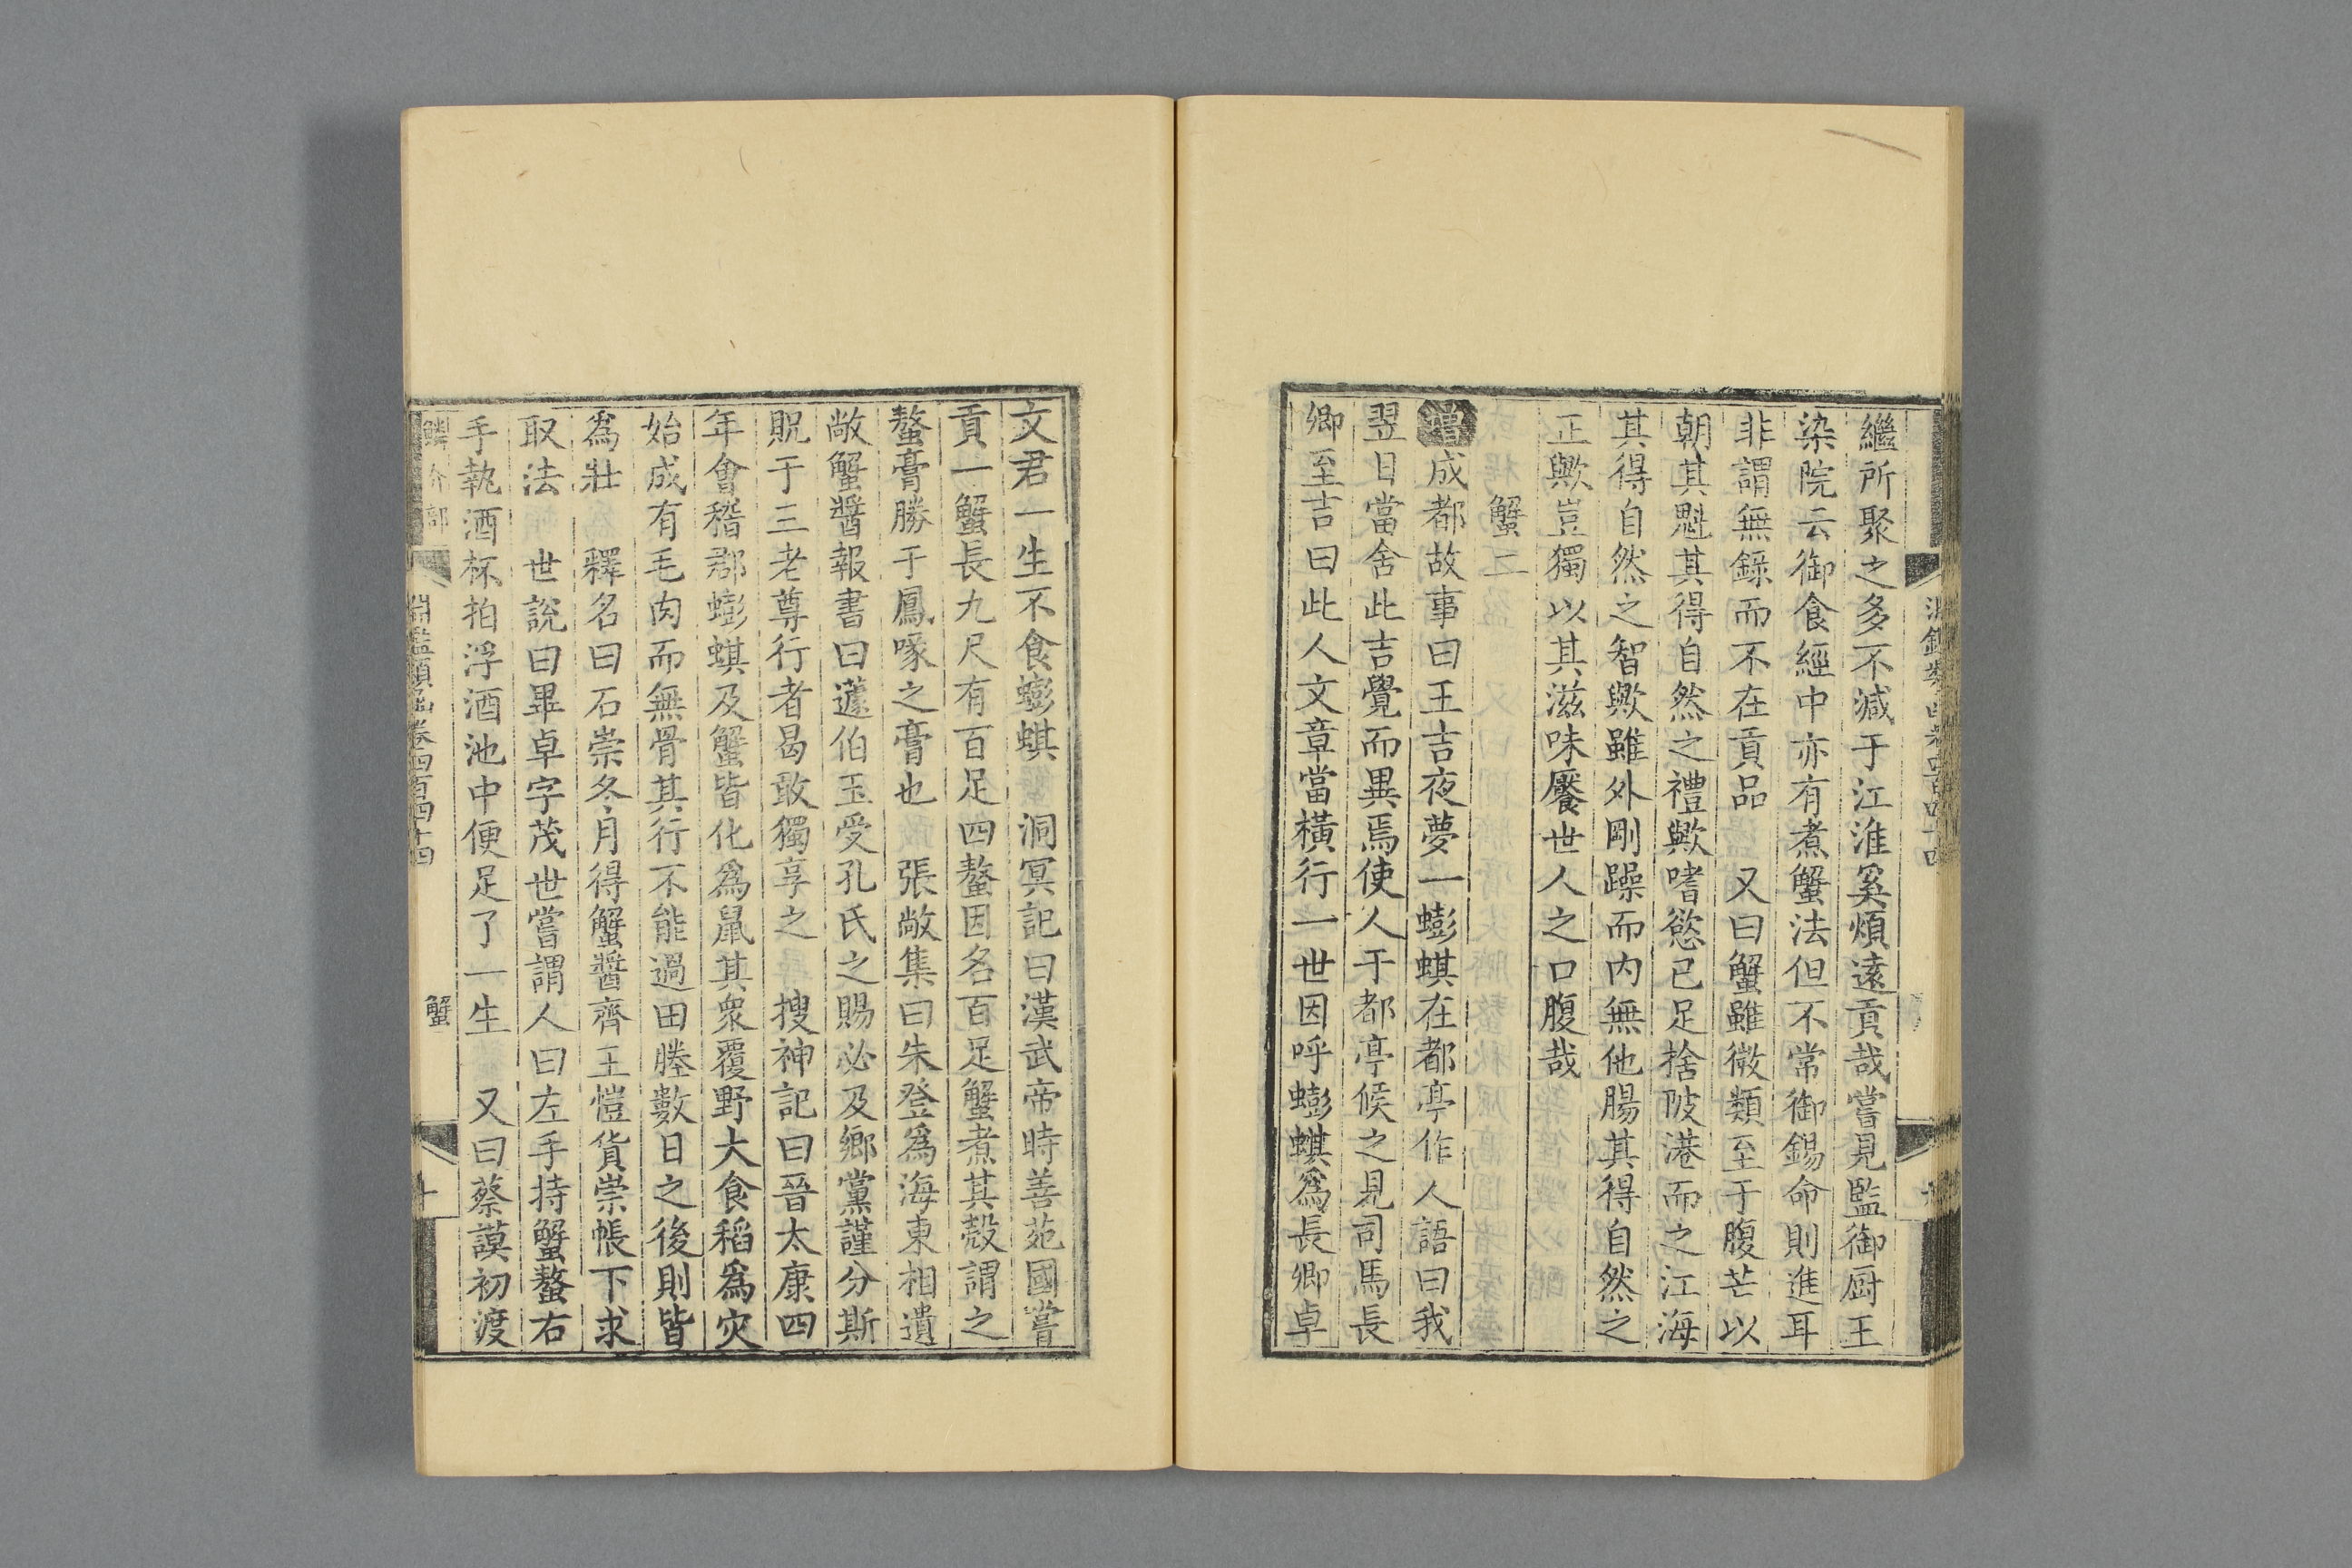 繼所聚之多不減于江淮奚煩遠貢哉嘗見監御厨王
染院云御食經中亦有煮蟹法但不常御錫命則進耳
非謂無錄而不在貢品　又曰蟹雖微類至于腹芒以
朝其魁其得自然之禮歟嗜慾已足捨陂港而之江海
其得自然之智歟雖外剛躁而内無他腸其得自然之
正歟豈獨以其滋味饜世人之口腹哉
蟹二
增成都故事曰王吉夜夢一蟛蜞在都亭作人語曰我
翌日當舍此吉覺而異焉使人于都亭候之見司馬長
卿至吉曰此人文章當橫行一世因呼蟛蜞爲長卿卓
文君一生不食蟛蜞　洞冥記曰漢武帝時善苑國嘗
貢一蟹長九尺有百足四螯因名百足蟹煮其殼謂之
螯膏勝于鳳喙之膏也　張敞集曰朱登爲海東相遺
敞蟹醬報書曰蘧伯玉受孔氏之賜必及鄉黨謹分斯
貺于三老尊行者曷敢獨享之　搜神記曰晉太康四
年會稽郡蟛蜞及蟹皆化爲鼠其衆覆野大食稻爲灾
始成有毛肉而無骨其行不能過田塍數日之後則皆
爲壯　釋名曰石崇冬月得蟹醬齊王愷貨崇帳下求
取法　世説曰畢卓字茂世嘗謂人曰左手持蟹螯右
手執酒杯拍浮酒池中便足了一生　又曰蔡謨初渡
鱗介部
淵鑑類函卷四百四十四
蟹